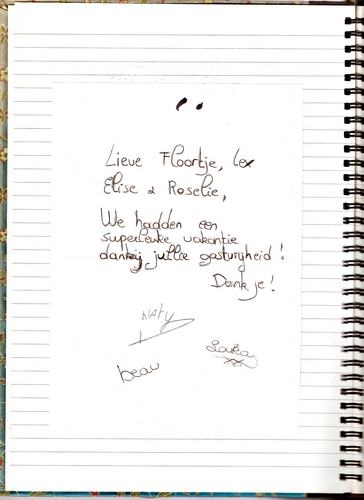 Lieve Floortje, Lex
Elise & Roselie,
We hadden een
superleuke vakantie
dankzij jullie gastvrijheid!
Dank je!
Naty
beau